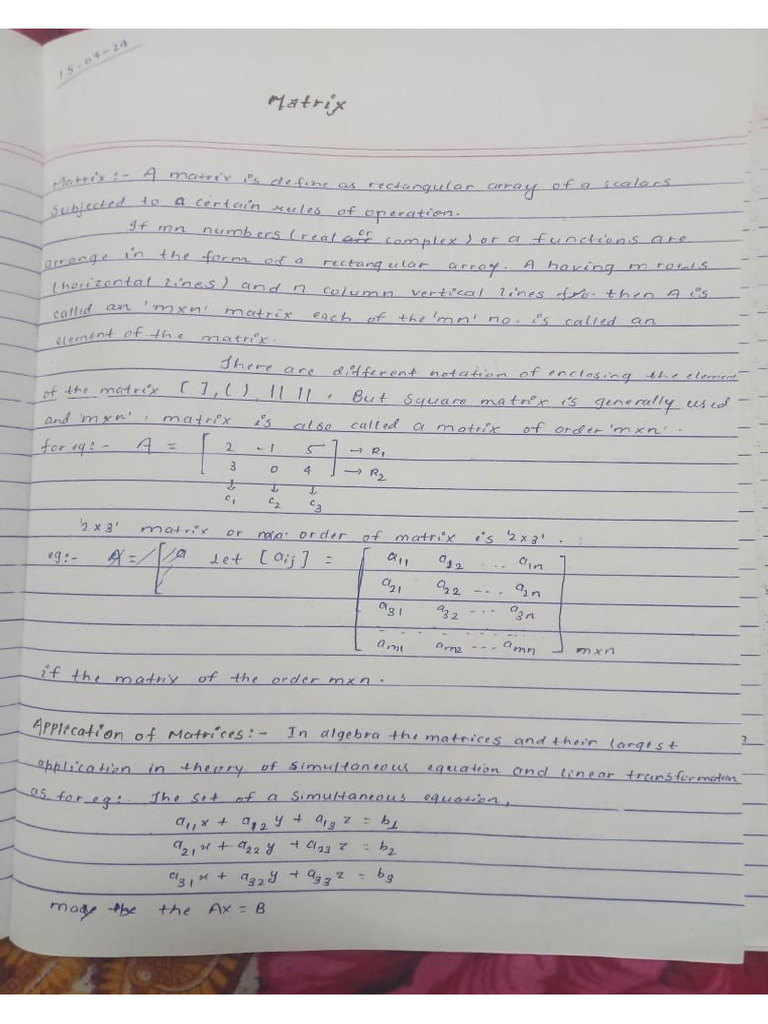 15-04-24
Matrix
Matrix :- A matrix is define as rectangular array of a scalars
subjected to a certain rules of operation.
If mn numbers (real or complex) or a functions are
arrange in the form of a rectangular array. A having m rows
(horizontal lines) and n column vertical lines then A is
called an 'mxn' matrix each of the 'mn' no. is called an
element of the matrix.
There are different notation of enclosing the element
of the matrix [ ], ( ), || ||. But square matrix is generally used
and 'mxn'. matrix is also called a matrix of order 'mxn'.
for eg:- A = [ 2 -1 5 ] → R1
3 0 4 → R2
↓ ↓ ↓
C1 C2 C3
'2x3' matrix or order of matrix is '2x3'.
eg:- let [aij] = [ a11 a12 ... a1n
a21 a22 ... a2n
a31 a32 ... a3n
am1 am2 ... amn ] mxn
if the matrix of the order mxn.
Application of Matrices:- In algebra the matrices and their largest
application in theory of simultaneous equation and linear transformation
as for eg:- The set of a simultaneous equation,
a11x + a12y + a13z = b1
a21x + a22y + a23z = b2
a31x + a32y + a33z = b3
may be the Ax = B